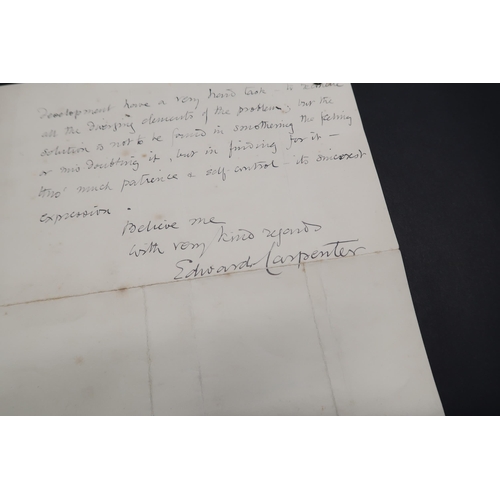 development have a very hard task - to reconcile
all the diverging elements of the problem, but the
solution is not to be found in smothering the feeling
or in doubting it, but in finding for it -
tho' much patience & self-control - its sincerest
expression.
Believe me
with very kind regards
Edward Carpenter